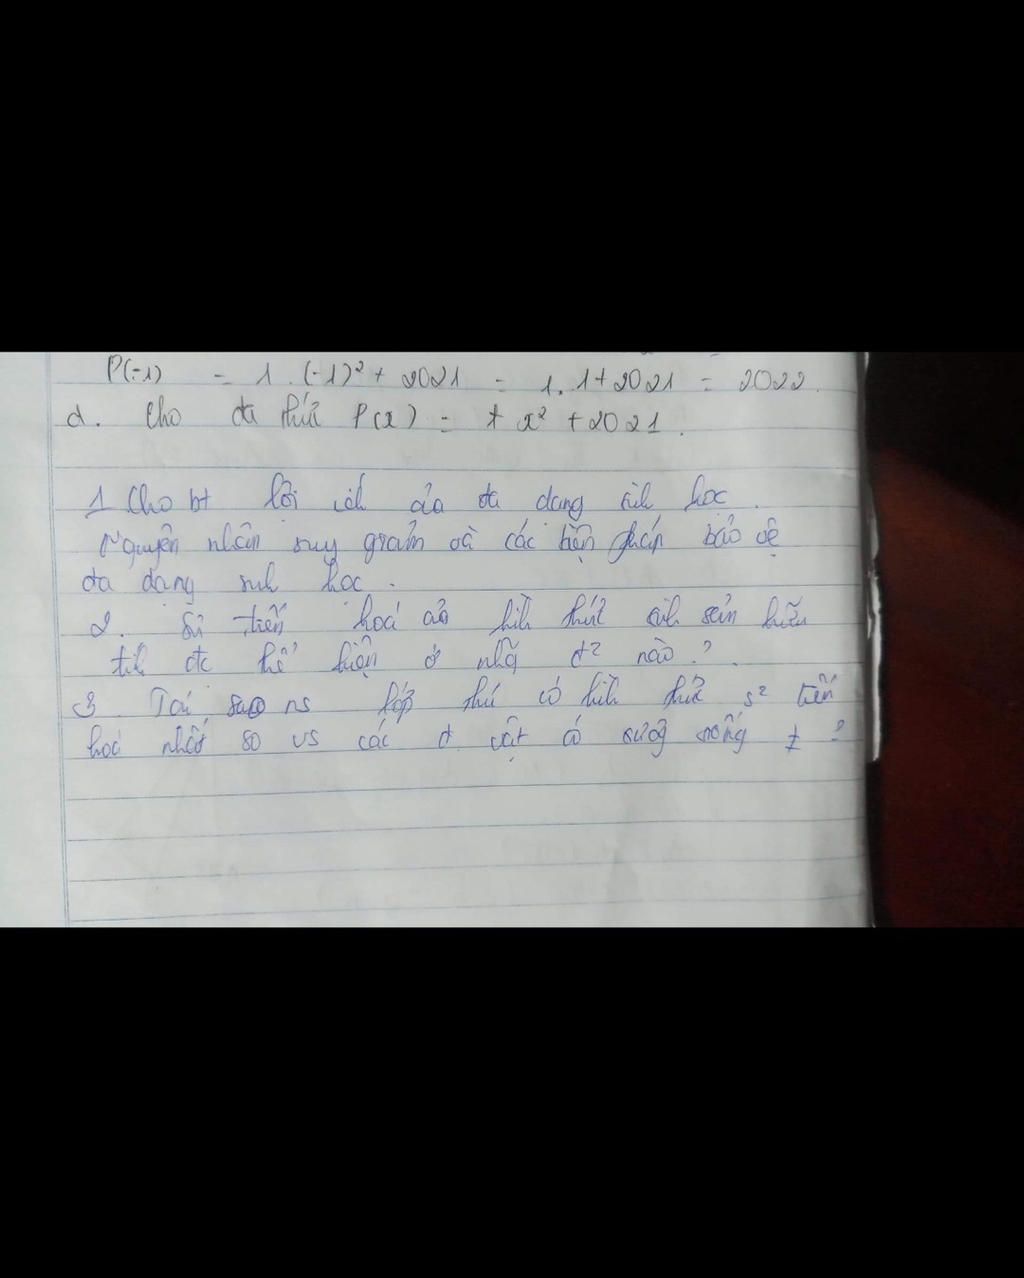 P(-1) = 1 . (-1)² + 2021 = 1 . 1 + 2021 = 2022.
d. Cho đa thức P(x) = x² + 2021.
1 Cho bt lợi ích của đa dạng sinh học.
Nguyên nhân suy giảm và các biện pháp bảo vệ
đa dạng sinh học.
2. Sự tiến hoá của hình thức sinh sản hữu
tính đc thể hiện ở nhữg đ² nào.?
3 Tại sao ns lớp thú có hình thức s² tiến
hoá nhất so vs các đ. vật có xươg sống ≠ ?